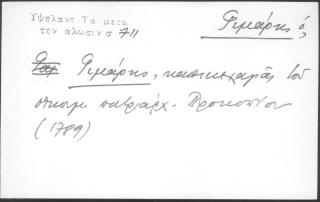 Υψηλαντ Τα μετα
την αλωσιν σ 711
Φιμάρης ὁ,
Φιμάρης, καπικεχαγιᾶς τοῦ
οἰκουμ πατριάρχ. Προκοπίου
(1789)